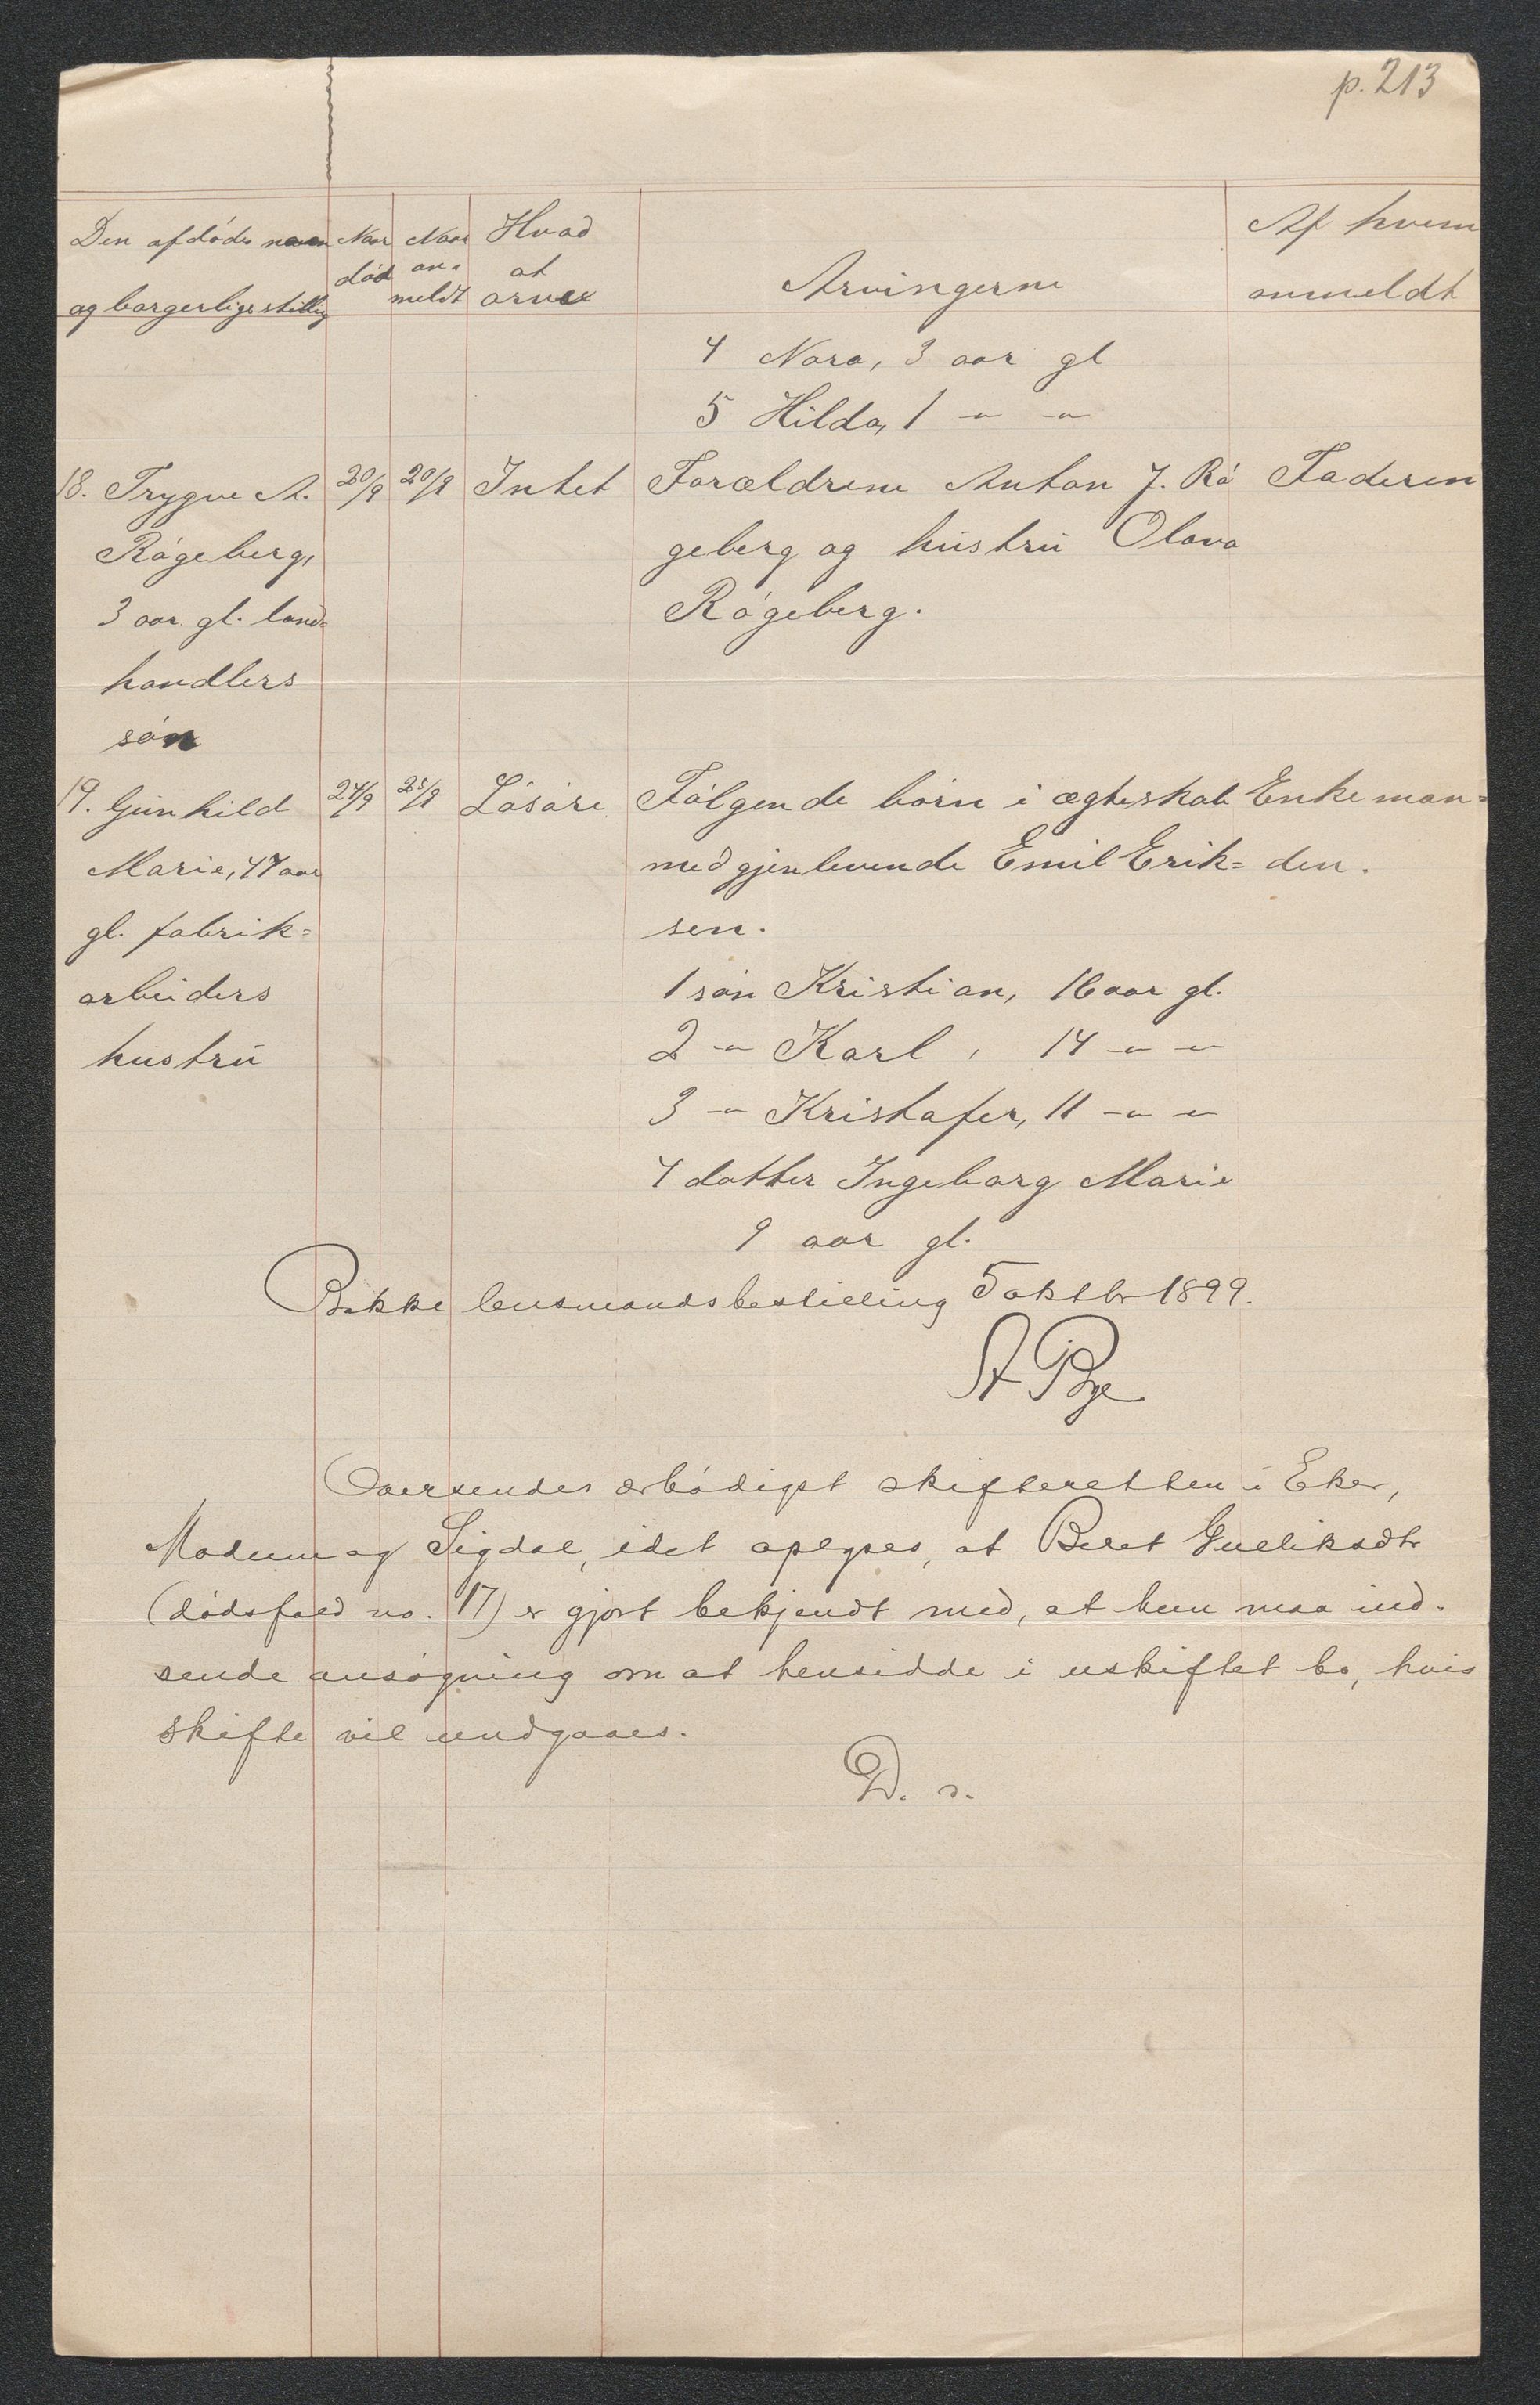 p. 213
Den afdødes navn Naar Naar Hvad Af hvem
død an- at
og borgerlige stilling meldt arve Arvingerne anmeldt
4 Nora, 3 aar gl
5 Hilda, 1 - " - "
18. Trygve A. 20/9 20/9 Intet Forældrene Anton J. Rø Faderen
Røgeberg, geberg og hustru Olava
3 aar gl. land= Røgeberg.
handlers
søn
19. Gunhild 24/9 25/9 Løsøre Følgende børn i ægteskab Enkeman=
Marie, 47 aar med gjenlevende Emil Erik= den.
gl. fabrik= sen.
arbeiders 1 søn Kristian, 16 aar gl.
hustru 2 - " Karl, 14 - " - "
3 - " Kristofer, 11 - " - "
4 datter Ingeborg Marie
9 aar gl.
Bakke lensmandsbestilling 5 oktbr 1899.
St Bye
Oversendes ærbødigst skifteretten i Eker,
Modum og Sigdal, idet oplyses, at Beret Gulliksdtr
(dødsfald no. 17) er gjort bekjendt med, at hun maa ind-
sende ansøgning om at hensidde i uskiftet bo, hvis
skifte vil undgaaes.
D. s.